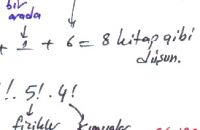 bir
arada
+ 1 + 6 = 8 kitap gibi
düşün.
!. 5!. 4!
fizikler